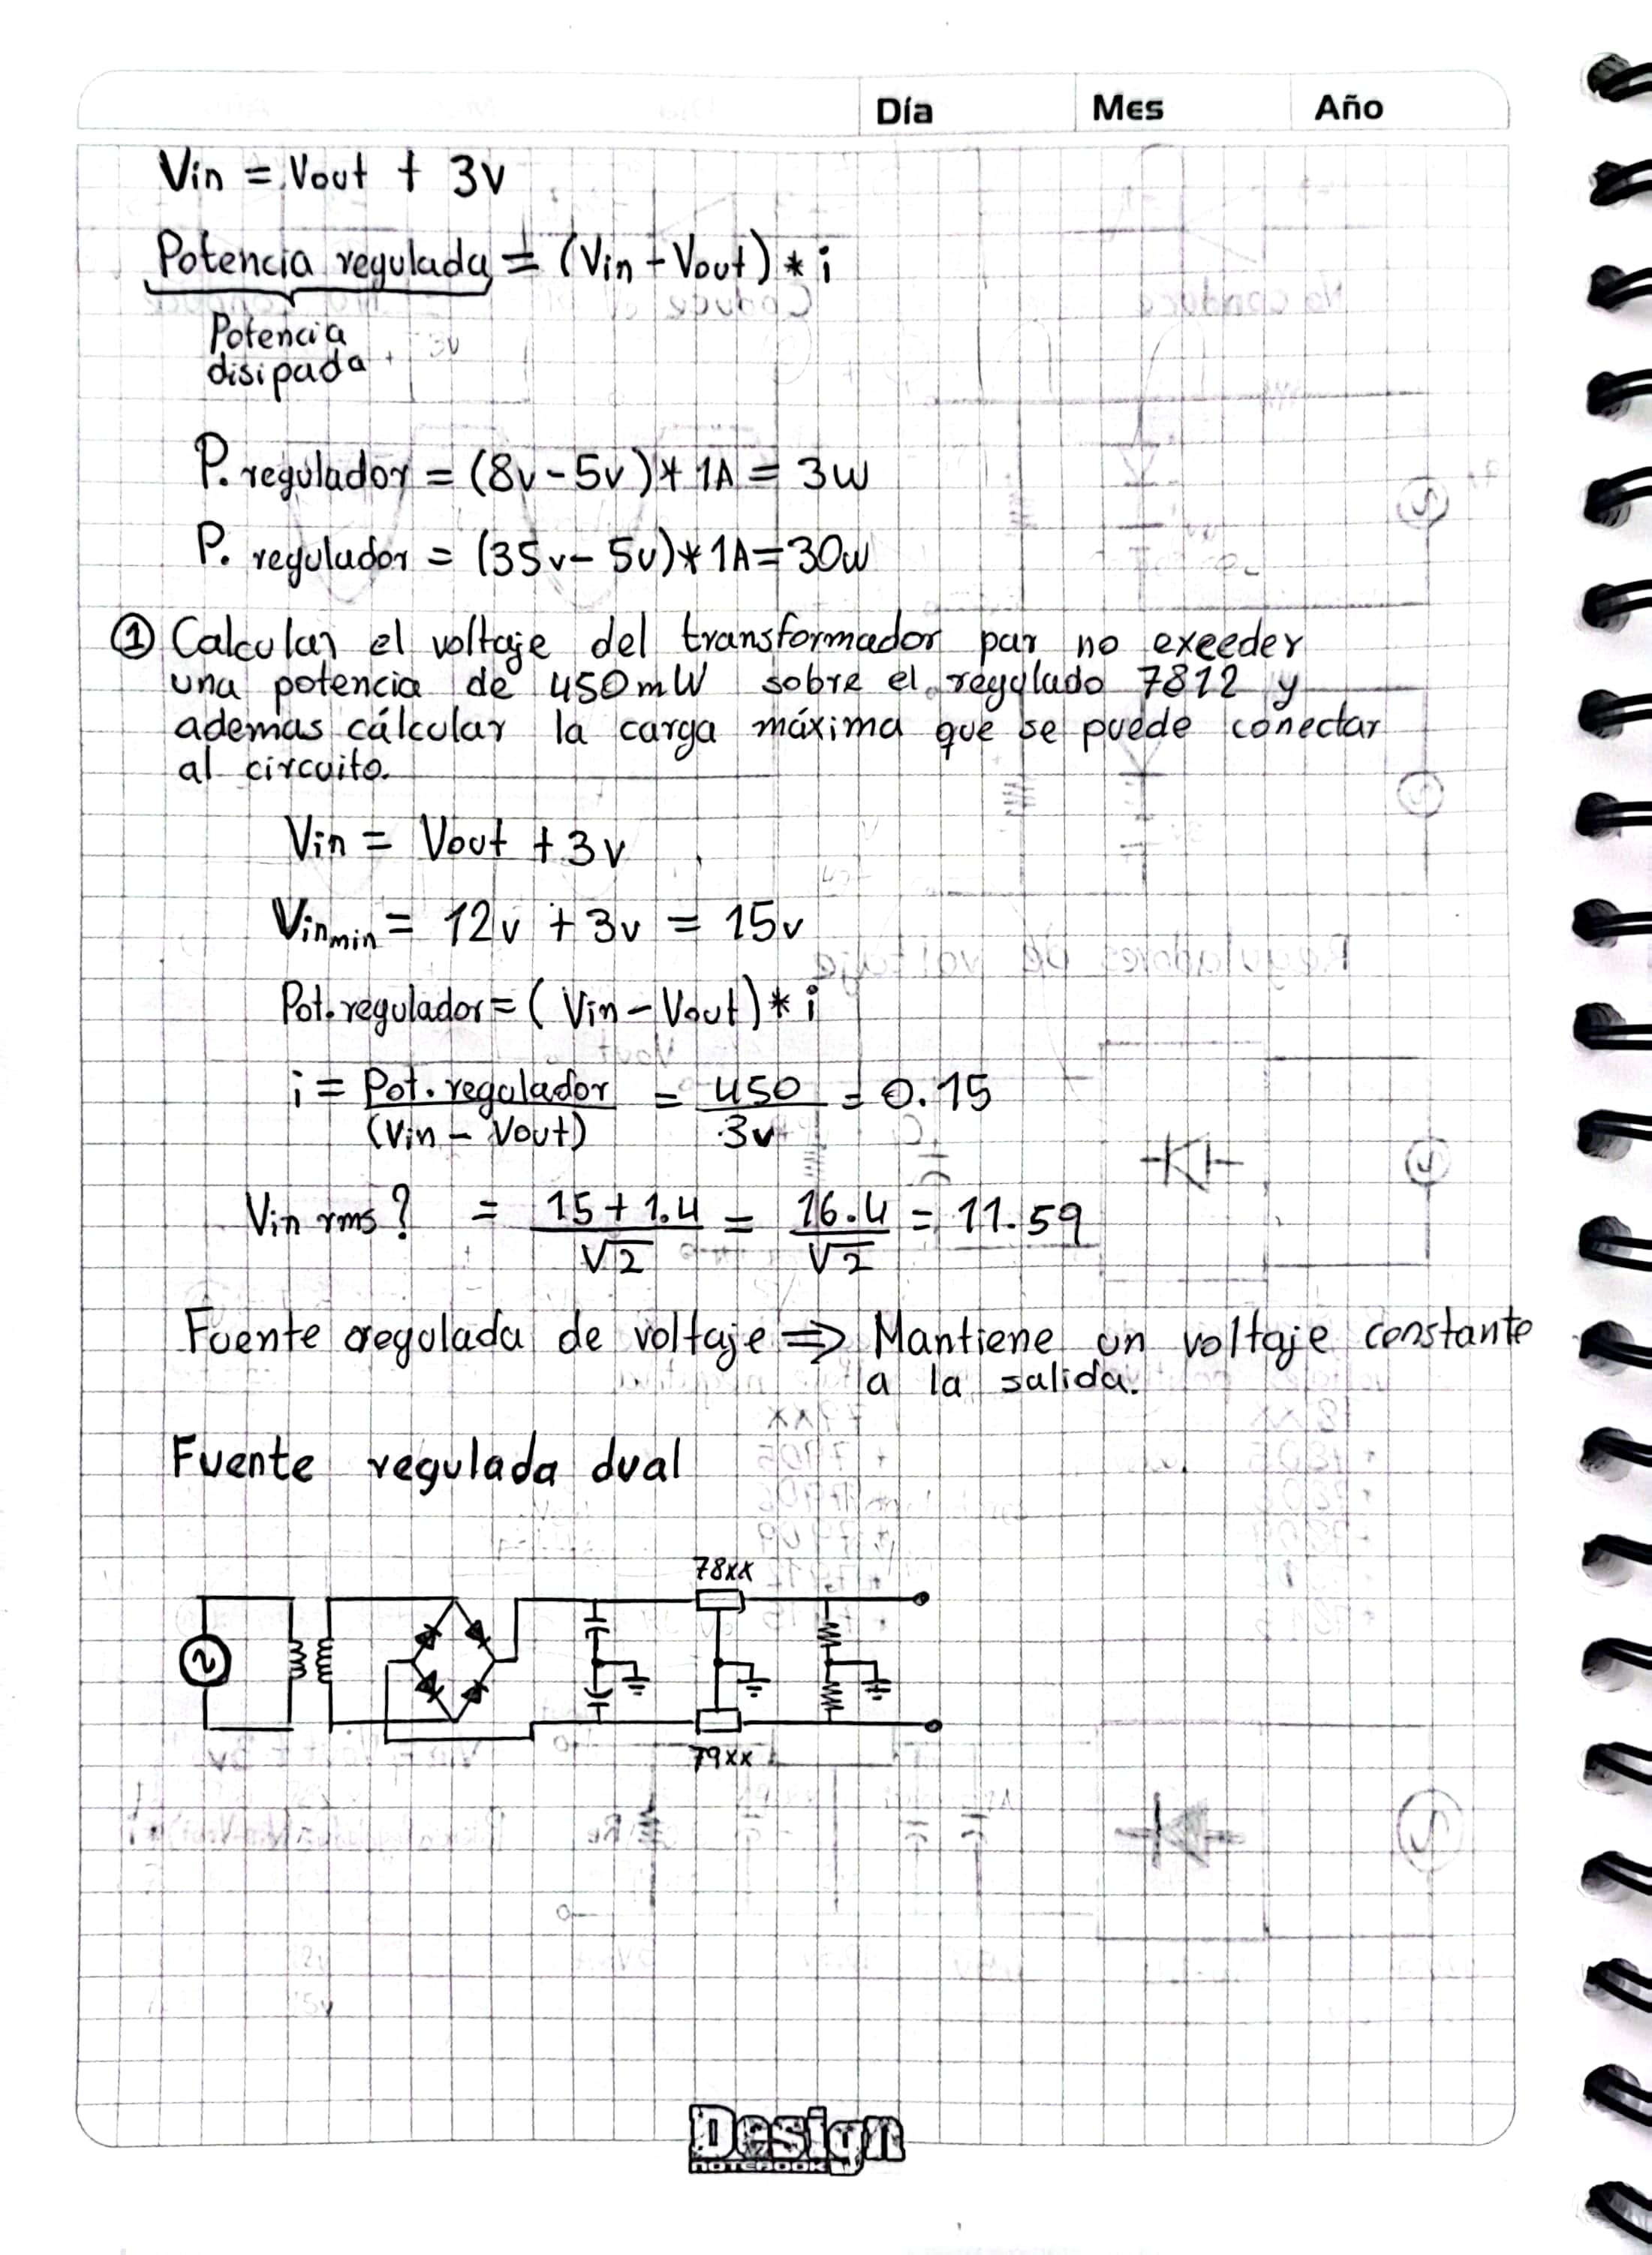 Día Mes Año
Vin = Vout + 3v
Potencia regulada = (Vin - Vout) * i
Potencia
disipada
P. regulador = (8v - 5v) * 1A = 3w
P. regulador = (35v - 5v) * 1A = 30w
① Calcular el voltaje del transformador par no exeeder
una potencia de 450mW sobre el regulado 7812 y
ademas cálcular la carga máxima que se puede conectar
al circuito.
Vin = Vout + 3v
Vinmin = 12v + 3v = 15v
Pot. regulador = (Vin - Vout) * i
i = Pot. regulador / (Vin - Vout) = 450 / 3v = 0.15
Vin rms? = 15 + 1.4 / √2 = 16.4 / √2 = 11.59
Fuente regulada de voltaje ⇒ Mantiene un voltaje constante
a la salida.
Fuente regulada dual
78xx
79xx
Design
NOTEBOOK